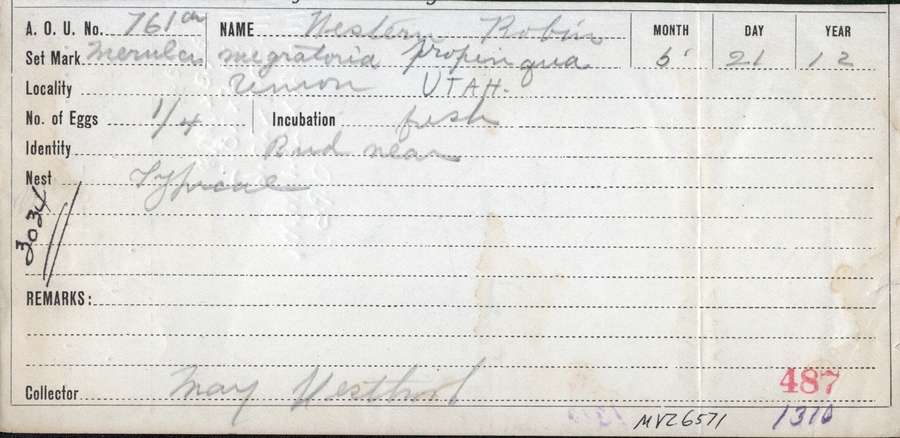 A. O. U. No. 761a NAME Western Robin MONTH DAY YEAR
Set Mark Merula migratoria propinqua 5 21 12
Locality Union UTAH.
No. of Eggs 1/4 Incubation fresh
Identity Bird near
Nest Typical
3034
REMARKS:
Collector May
487
MVZ6571 1310